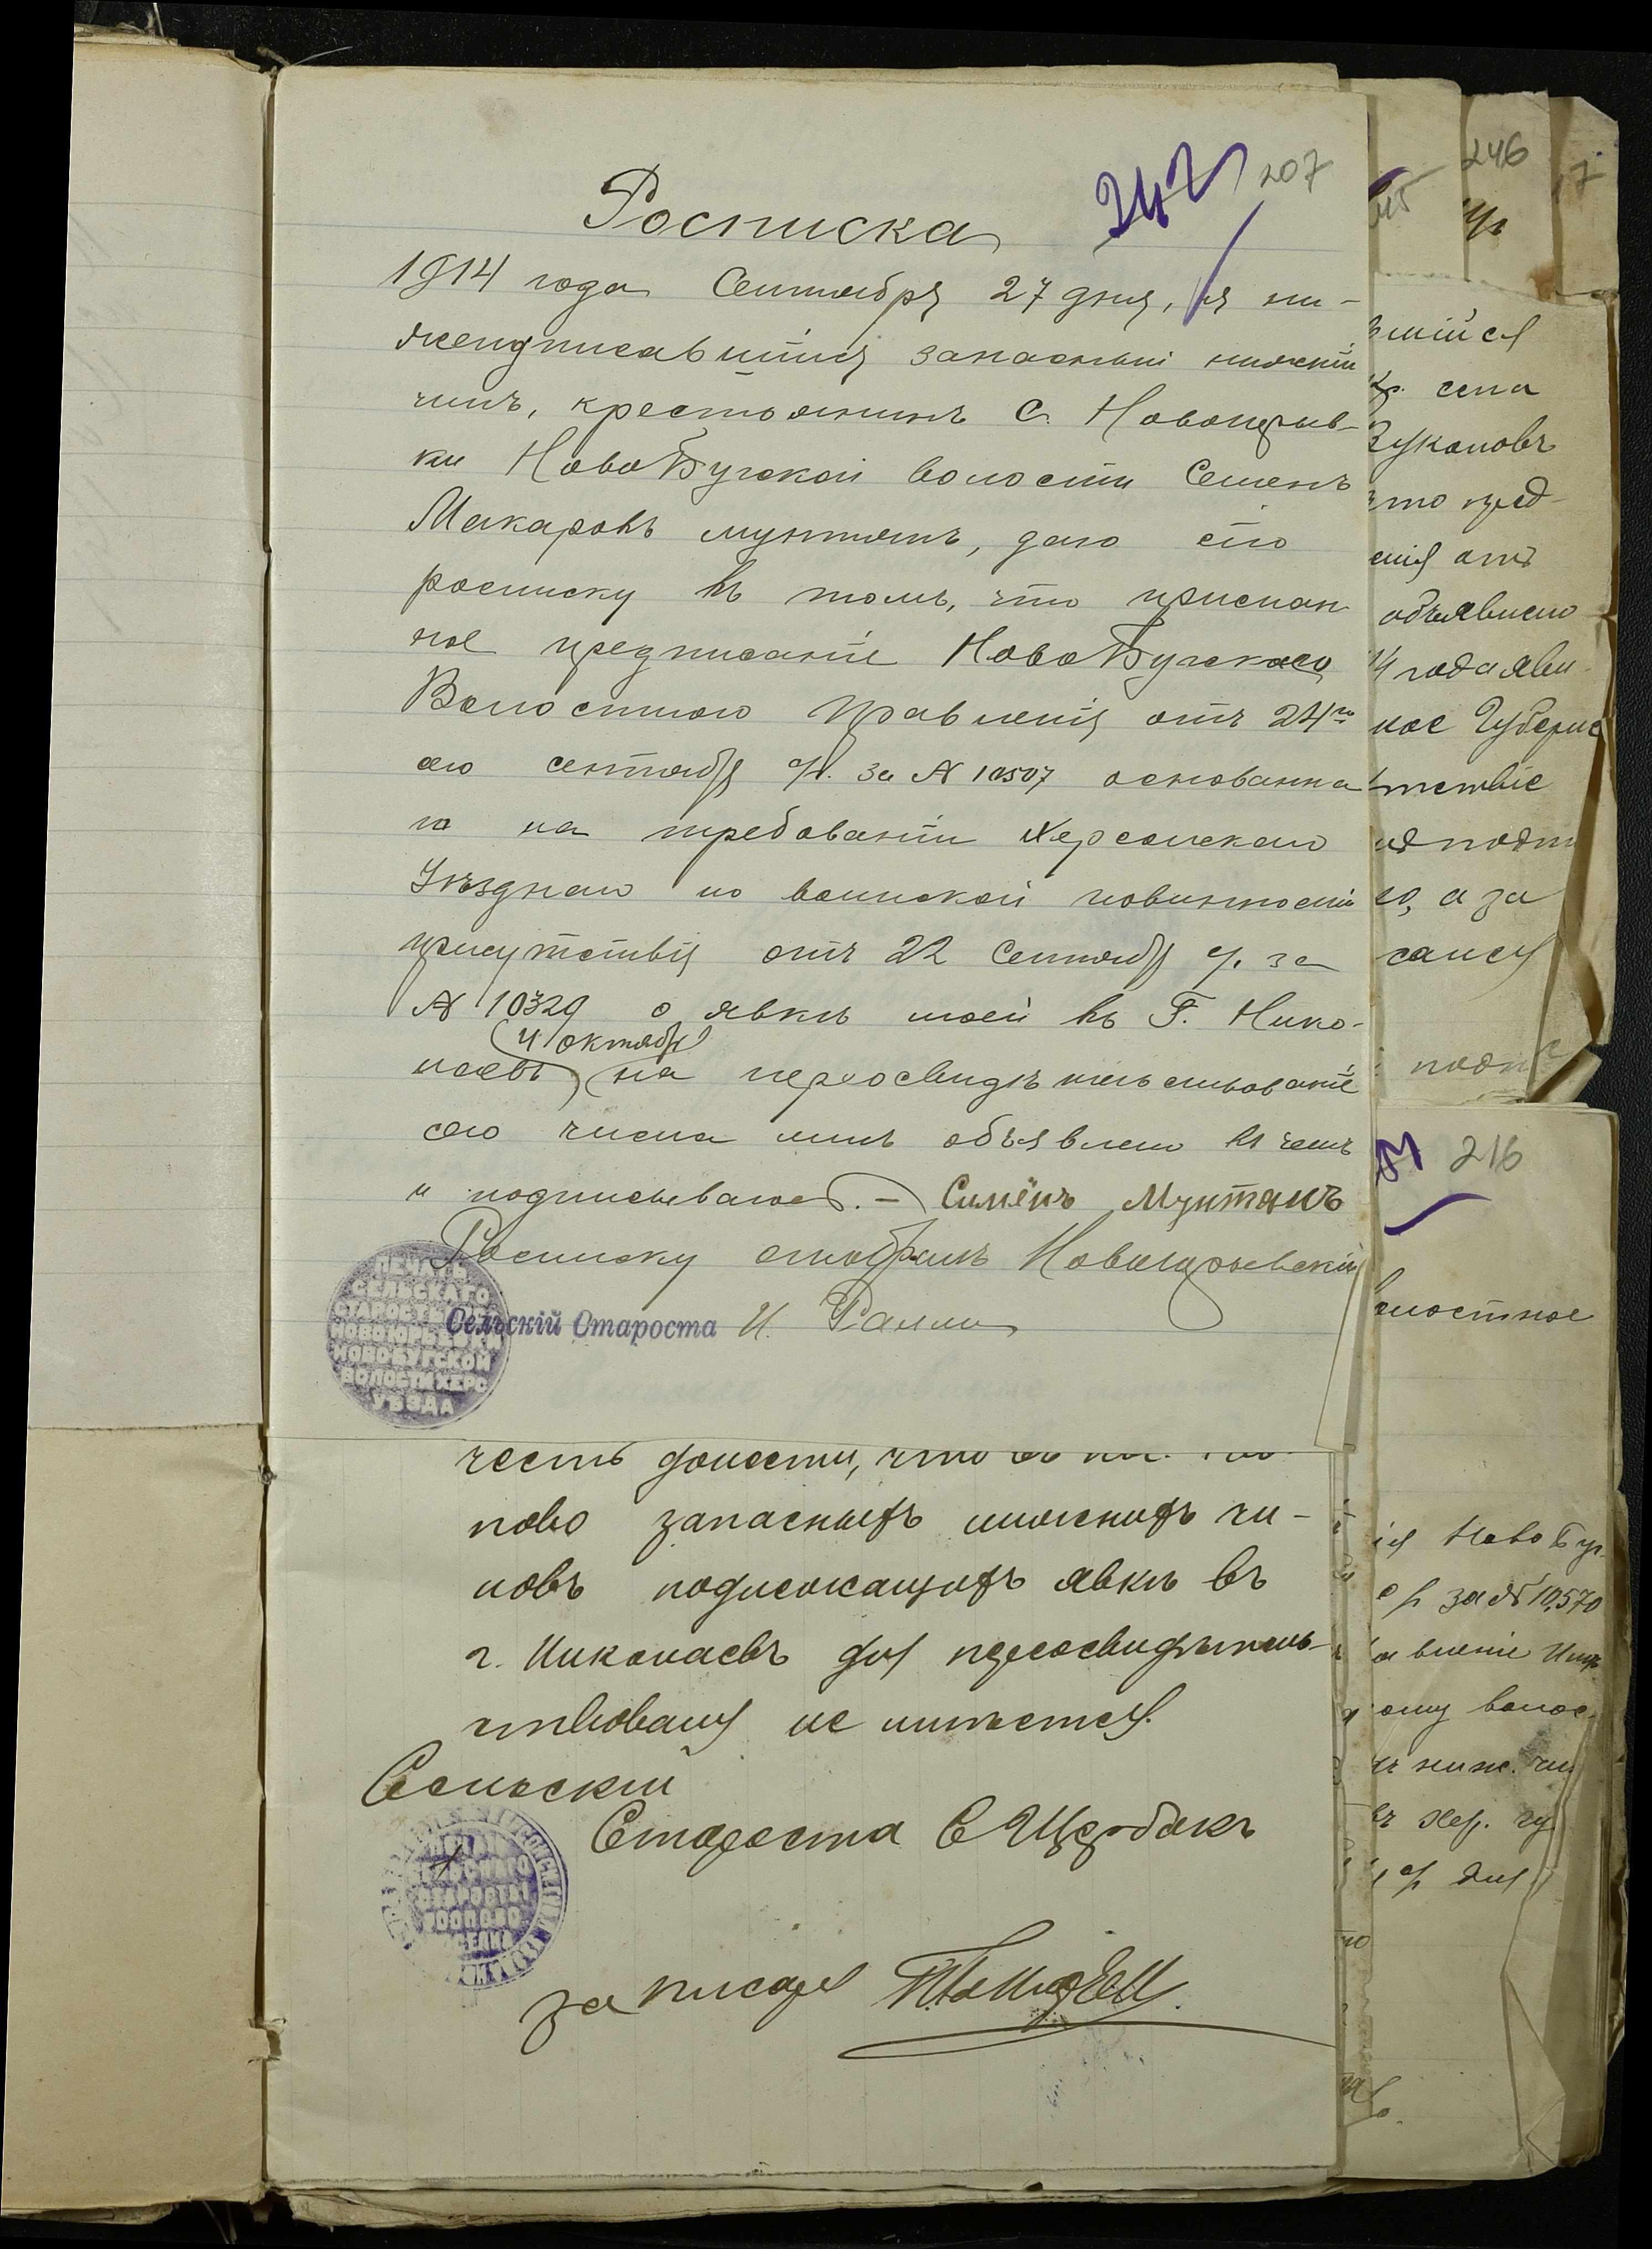 247 207
Росписка
1914 года Сентября 27 дня, я ни-
жеподписавшійся запасный нижній
чинъ, крестьянинъ С. Новоюрьев-
ки НовоБугской волости Семенъ
Макаровъ Мунтянъ, даю сію
росписку въ томъ, что прислан
ное предписаніе НовоБугскаго
Волостного Правленія отъ 24го
сего сентября с/г. за № 10507 основанна
го на требованіи Херсонскаго
Уѣзднаго по воинской повинности
присутствія отъ 22 Сентября с/г. за
№ 10329 о явкѣ моей въ Г. Нико-
4 октября
лаевъ на переосвидѣтельствованіе
сего числа мнѣ объявлено въ чемъ
и подписываюсь. – Симёнъ Мунтянъ
Росписку отобралъ Новоюрьевскій
Сельскій Староста И. Ралли
ПЕЧАТЬ
СЕЛЬСКАГО
СТАРОСТЫ
НОВОЮРЬЕВКИ
НОВОБУГСКОЙ
ВОЛОСТИ ХЕРС
УѢЗДА
честь донести, что въ
пово запасныхъ нижнихъ чи-
новъ подлежащихъ явкѣ въ
г. Николаевъ для переосвидѣтель-
ствованія не имѣется.
Сельскій
Староста С Щербакъ
за писаря
246
шійся
села
Зукановъ
то пред
енія отъ
объявлено
14 года яви
ное Губерн
тствіе
и подп
го, а за
сался
подп
216
лостное
ія НовоБуг
за № 10,570
ому волос
ниж. чи
Хер. гу
для